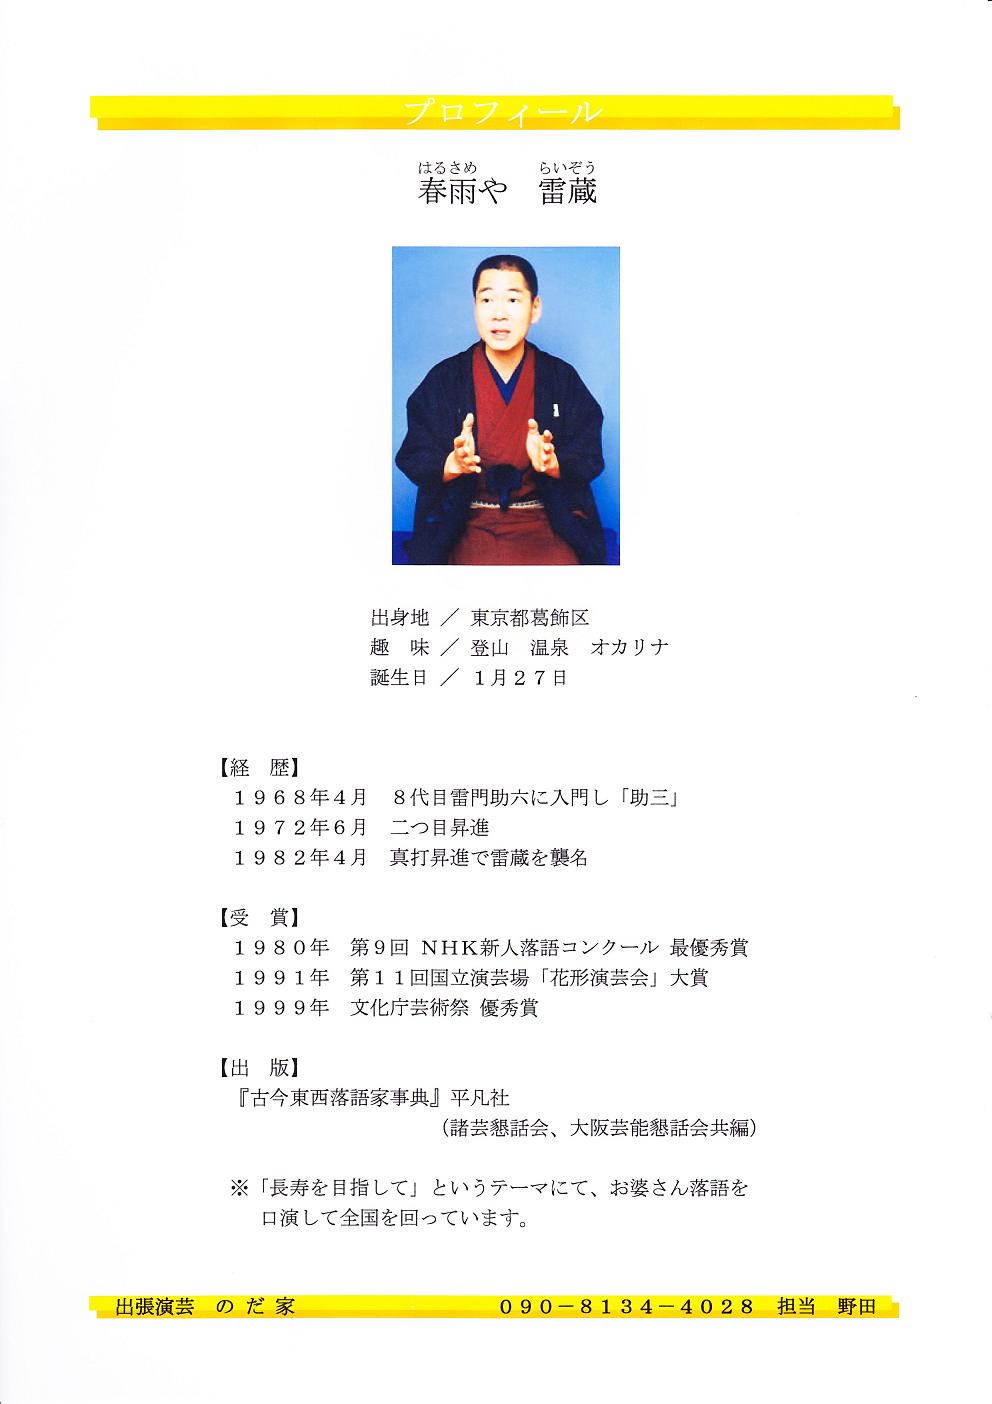 プロフィール
はるさめ らいぞう
春雨や 雷蔵
出身地 ／ 東京都葛飾区
趣 味 ／ 登山 温泉 オカリナ
誕生日 ／ １月２７日
【経 歴】
１９６８年４月 ８代目雷門助六に入門し「助三」
１９７２年６月 二つ目昇進
１９８２年４月 真打昇進で雷蔵を襲名
【受 賞】
１９８０年 第９回 ＮＨＫ新人落語コンクール 最優秀賞
１９９１年 第１１回国立演芸場「花形演芸会」大賞
１９９９年 文化庁芸術祭 優秀賞
【出 版】
『古今東西落語家事典』平凡社
（諸芸懇話会、大阪芸能懇話会共編）
※「長寿を目指して」というテーマにて、お婆さん落語を
口演して全国を回っています。
出張演芸 の だ 家 ０９０－８１３４－４０２８ 担当 野田